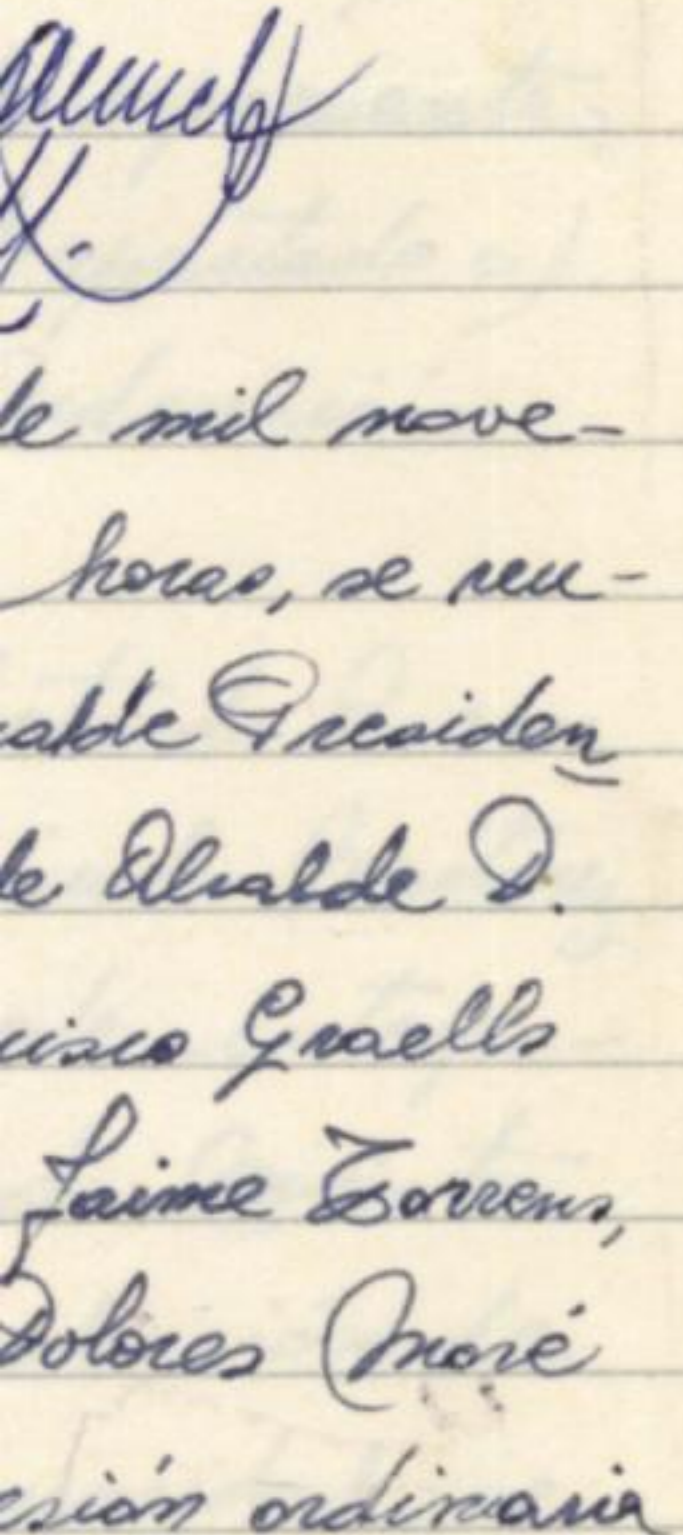 de mil nove-
horas, se reu-
calde Presiden
de Alcalde D.
cisco Graells
Jaime Torrens,
Dolores Moré
esión ordinaria